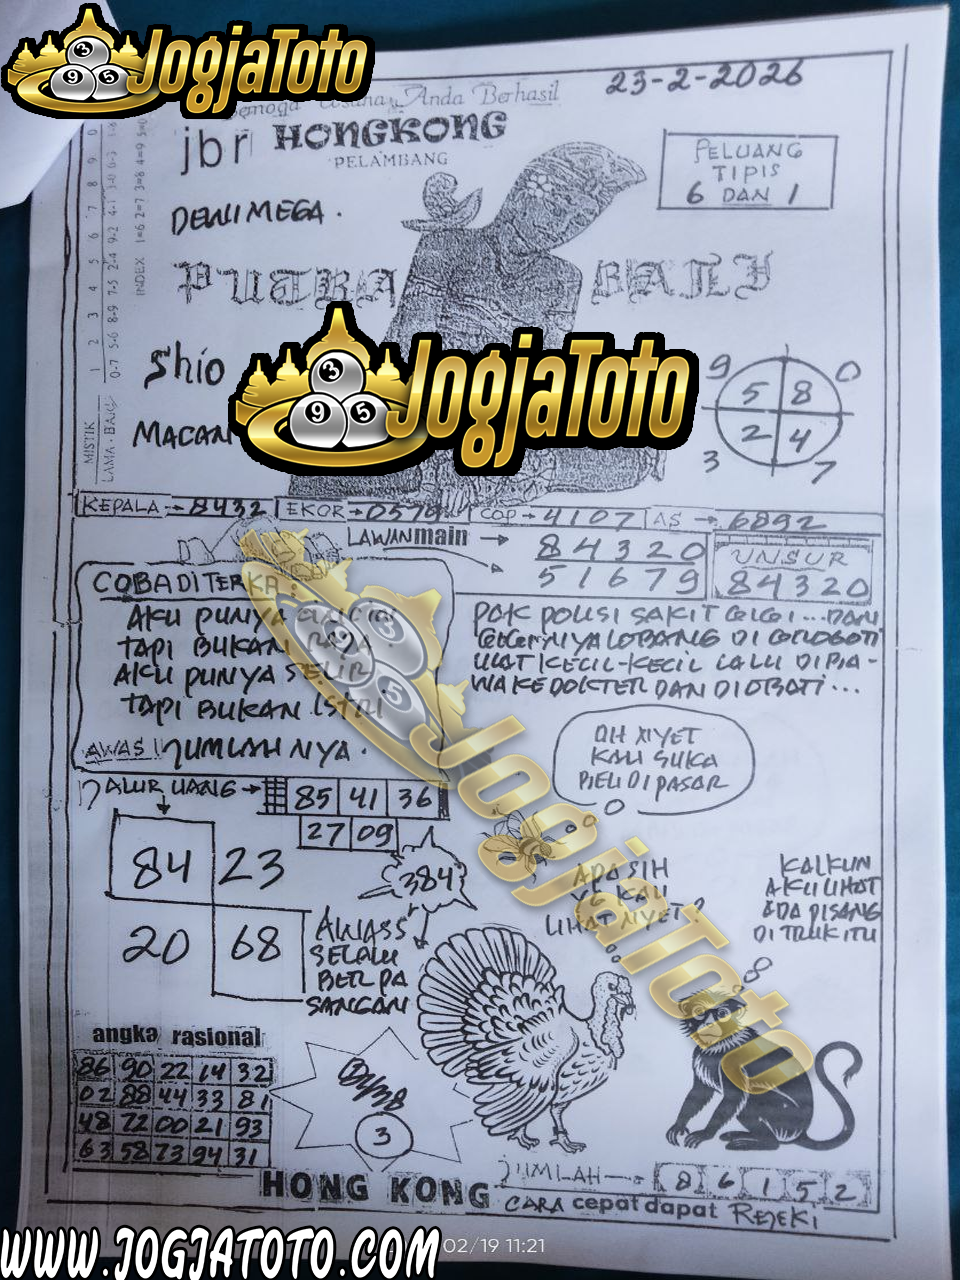 JogjaToto
3 9 5
23-2-2026
Anda Berhasil
jbr HONGKONG
PELAMBANG
PELUANG
TIPIS
6 DAN 1
DEWI MEGA.
PUTRA BALI
INDEX 1=6 2=7 3=8 4=9 5=0
1 2 3 4 5 6 7 8 9 0
0-7 5-6 8-9 7-5 2-4 9-2 4-1 3-0 6-3 1-8
MISTIK
LAMA - BARU
Shio
MACAN
JogjaToto
3 9 5
9 0
5 8
2 4
3 7
KEPALA → 8432 EKOR → 0579 COP → 4107 AS → 6892
LAWAN main → 84320
51679
UNSUR
84320
COBA DITERKA:
AKU PUNYA
TAPI BUKAN
AKU PUNYA SELIR
TAPI BUKAN ISTRI
AWAS! JUMLAHNYA.
PAK POLISI SAKIT GIGI...DAN
GEGERNIYA LOBANG DI GEROGOTI
ULAT KECIL-KECIL LALU DIBA-
WA KE DOKTER DAN DIOBATI...
OH NYET
KAU SUKA
BELI DI PASAR
JALUR UANG → 85 41 36
27 09
84 23
20 68
384
AWASS
SELALU
BERPA
SANGAN
APA SIH
YG KAU
LIHAT NYET?
KALKUN
AKU LIHAT
ADA PISANG
DI TRUK ITU
angka rasional
86 90 22 14 32
02 88 44 33 81
48 72 00 21 93
63 58 73 94 31
3
JUMLAH → 8 6 1 5 2
HONG KONG CARA cepat dapat REJEKI
JogjaToto
WWW.JOGJATOTO.COM
02/19 11:21